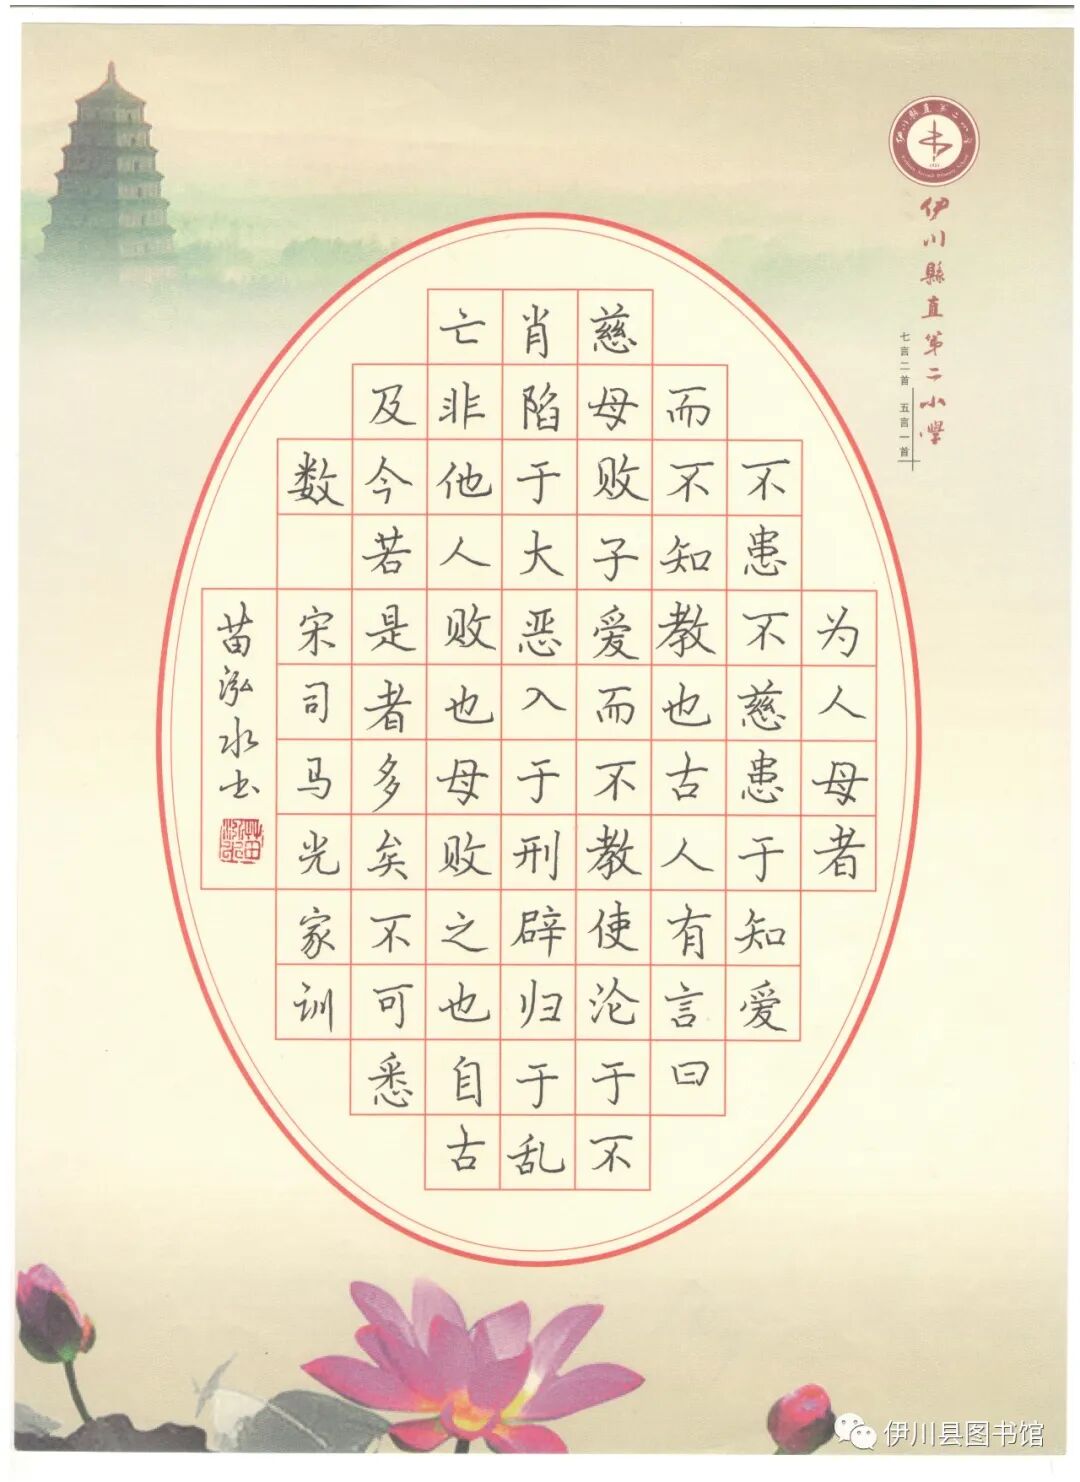 伊川縣直第二小學
伊川縣直第二小學
七言二首 五言一首
为人母者
不患不慈患于知爱
而不知教也古人有言曰
慈母败子爱而不教使沦于不
肖陷于大恶入于刑辟归于乱
亡非他人败也母败之也自古
及今若是者多矣不可悉
数 宋司马光家训
苗泓水书
伊川县图书馆